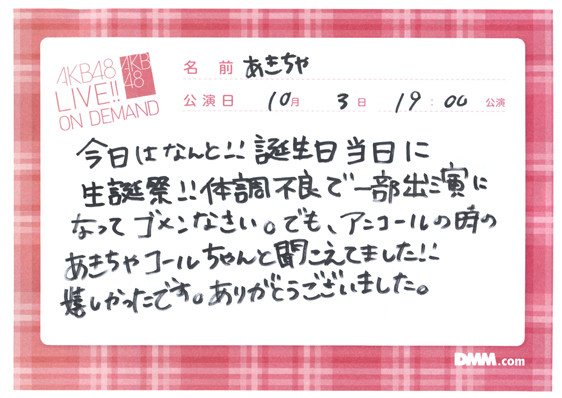 AKB48
LIVE!!
ON DEMAND
AKB
48
名前 あきちゃ
公演日 10月 3日 19:00 公演
今日はなんと!! 誕生日当日に
生誕祭!! 体調不良で一部出演に
なってゴメンなさい。でも、アンコールの時の
あきちゃコールちゃんと聞こえてました!!
嬉しかったです。ありがとうございました。
DMM.com